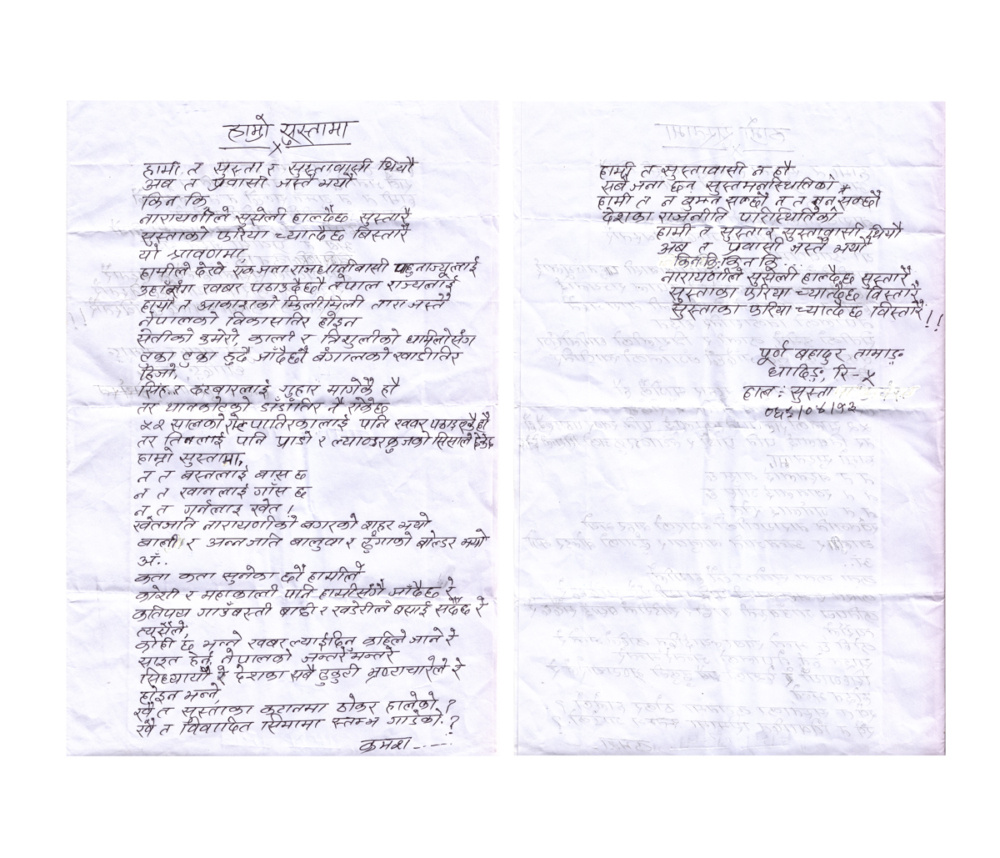 हाम्रो सुस्तामा
हामी त सुस्ता र सुस्तावासी थियौ
अब त प्रवासी जस्तै भयौ
किन कि
नारायणीले सुसेली हाल्दैछ सुस्तारै
सुस्ताको फरिया च्यात्दैछ बिस्तारै
यो श्रावणमा,
हामीले देखे एक जना राजधानीबासी
खबर पठाउदैछौ नेपाल राज्यलाई
हामी त आकाशको झिलीमिली तारा जस्तै
नेपालको विकासतिर होइन
सेतीको कमेरो, काली र त्रिशुलीको धमिलोसंग
टुक्रा हुदै जाँदैछौ बंगालको खाडीतिर
हिजो,
सिंह दरबारलाई गुहार मागेकै हौ
तर थानकोटको डाँडातिर नै रोकेछ
५२ सालको पातिरकालाई पनि खबर
तर तिनलाई पनि प्राडो र ल्याण्डरक्रुजको सिसाले
हाम्रो सुस्तामा,
न त बस्नलाई बास छ
न त खानलाई गाँस छ
न त गर्नलाई खेत।
खेतजति नारायणीको बगरको शहर भयो
बाली र अन्नजति बालुवा र ढुंगाको बोल्डर भयो
अँ..
कता कता सुनेका छौ हामीले
कोशी र महाकाली पनि हामीसंगै जाँदैछ रे
कतिपय गाउँबस्ती बाढी र खडेरीले बसाई सर्दैछ रे
त्यसैले,
कोही छ भन्ने खबर ल्याईदिन कहिले जाने रे
साइत हेर्न, नेपालको जन्तरैमन्तरै
सिध्यायौ रे देशका सबै ढुकुटी भ्रष्टाचारैले रे
होइन भन्ने,
खै त सुस्ताका कटानमा ठोकर हालेको.?
खै त विवादित सिमामा स्तम्भ गाडेको.?
क्रमश.....
हामी त सुस्तावासी न हौ
सबै जना छन् सुस्तमनस्थितिको
हामी त न बुझ्न सक्छौ न त सुन्न सक्छौ
देशका राजनीति परिस्थितिको
हामी त सुस्ता र सुस्तावासी थियौ
अब त प्रवासी जस्तै भयौ
किनकि किन कि
नारायणीले सुसेली हाल्दैछ सुस्तारै
सुस्ताका फरिया च्यात्दैछ विस्तारै
सुस्ताका फरिया च्यात्दैछ विस्तारै!!
पूर्ण बहादुर तामाङ
धादिङ,
हाल: सुस्ता